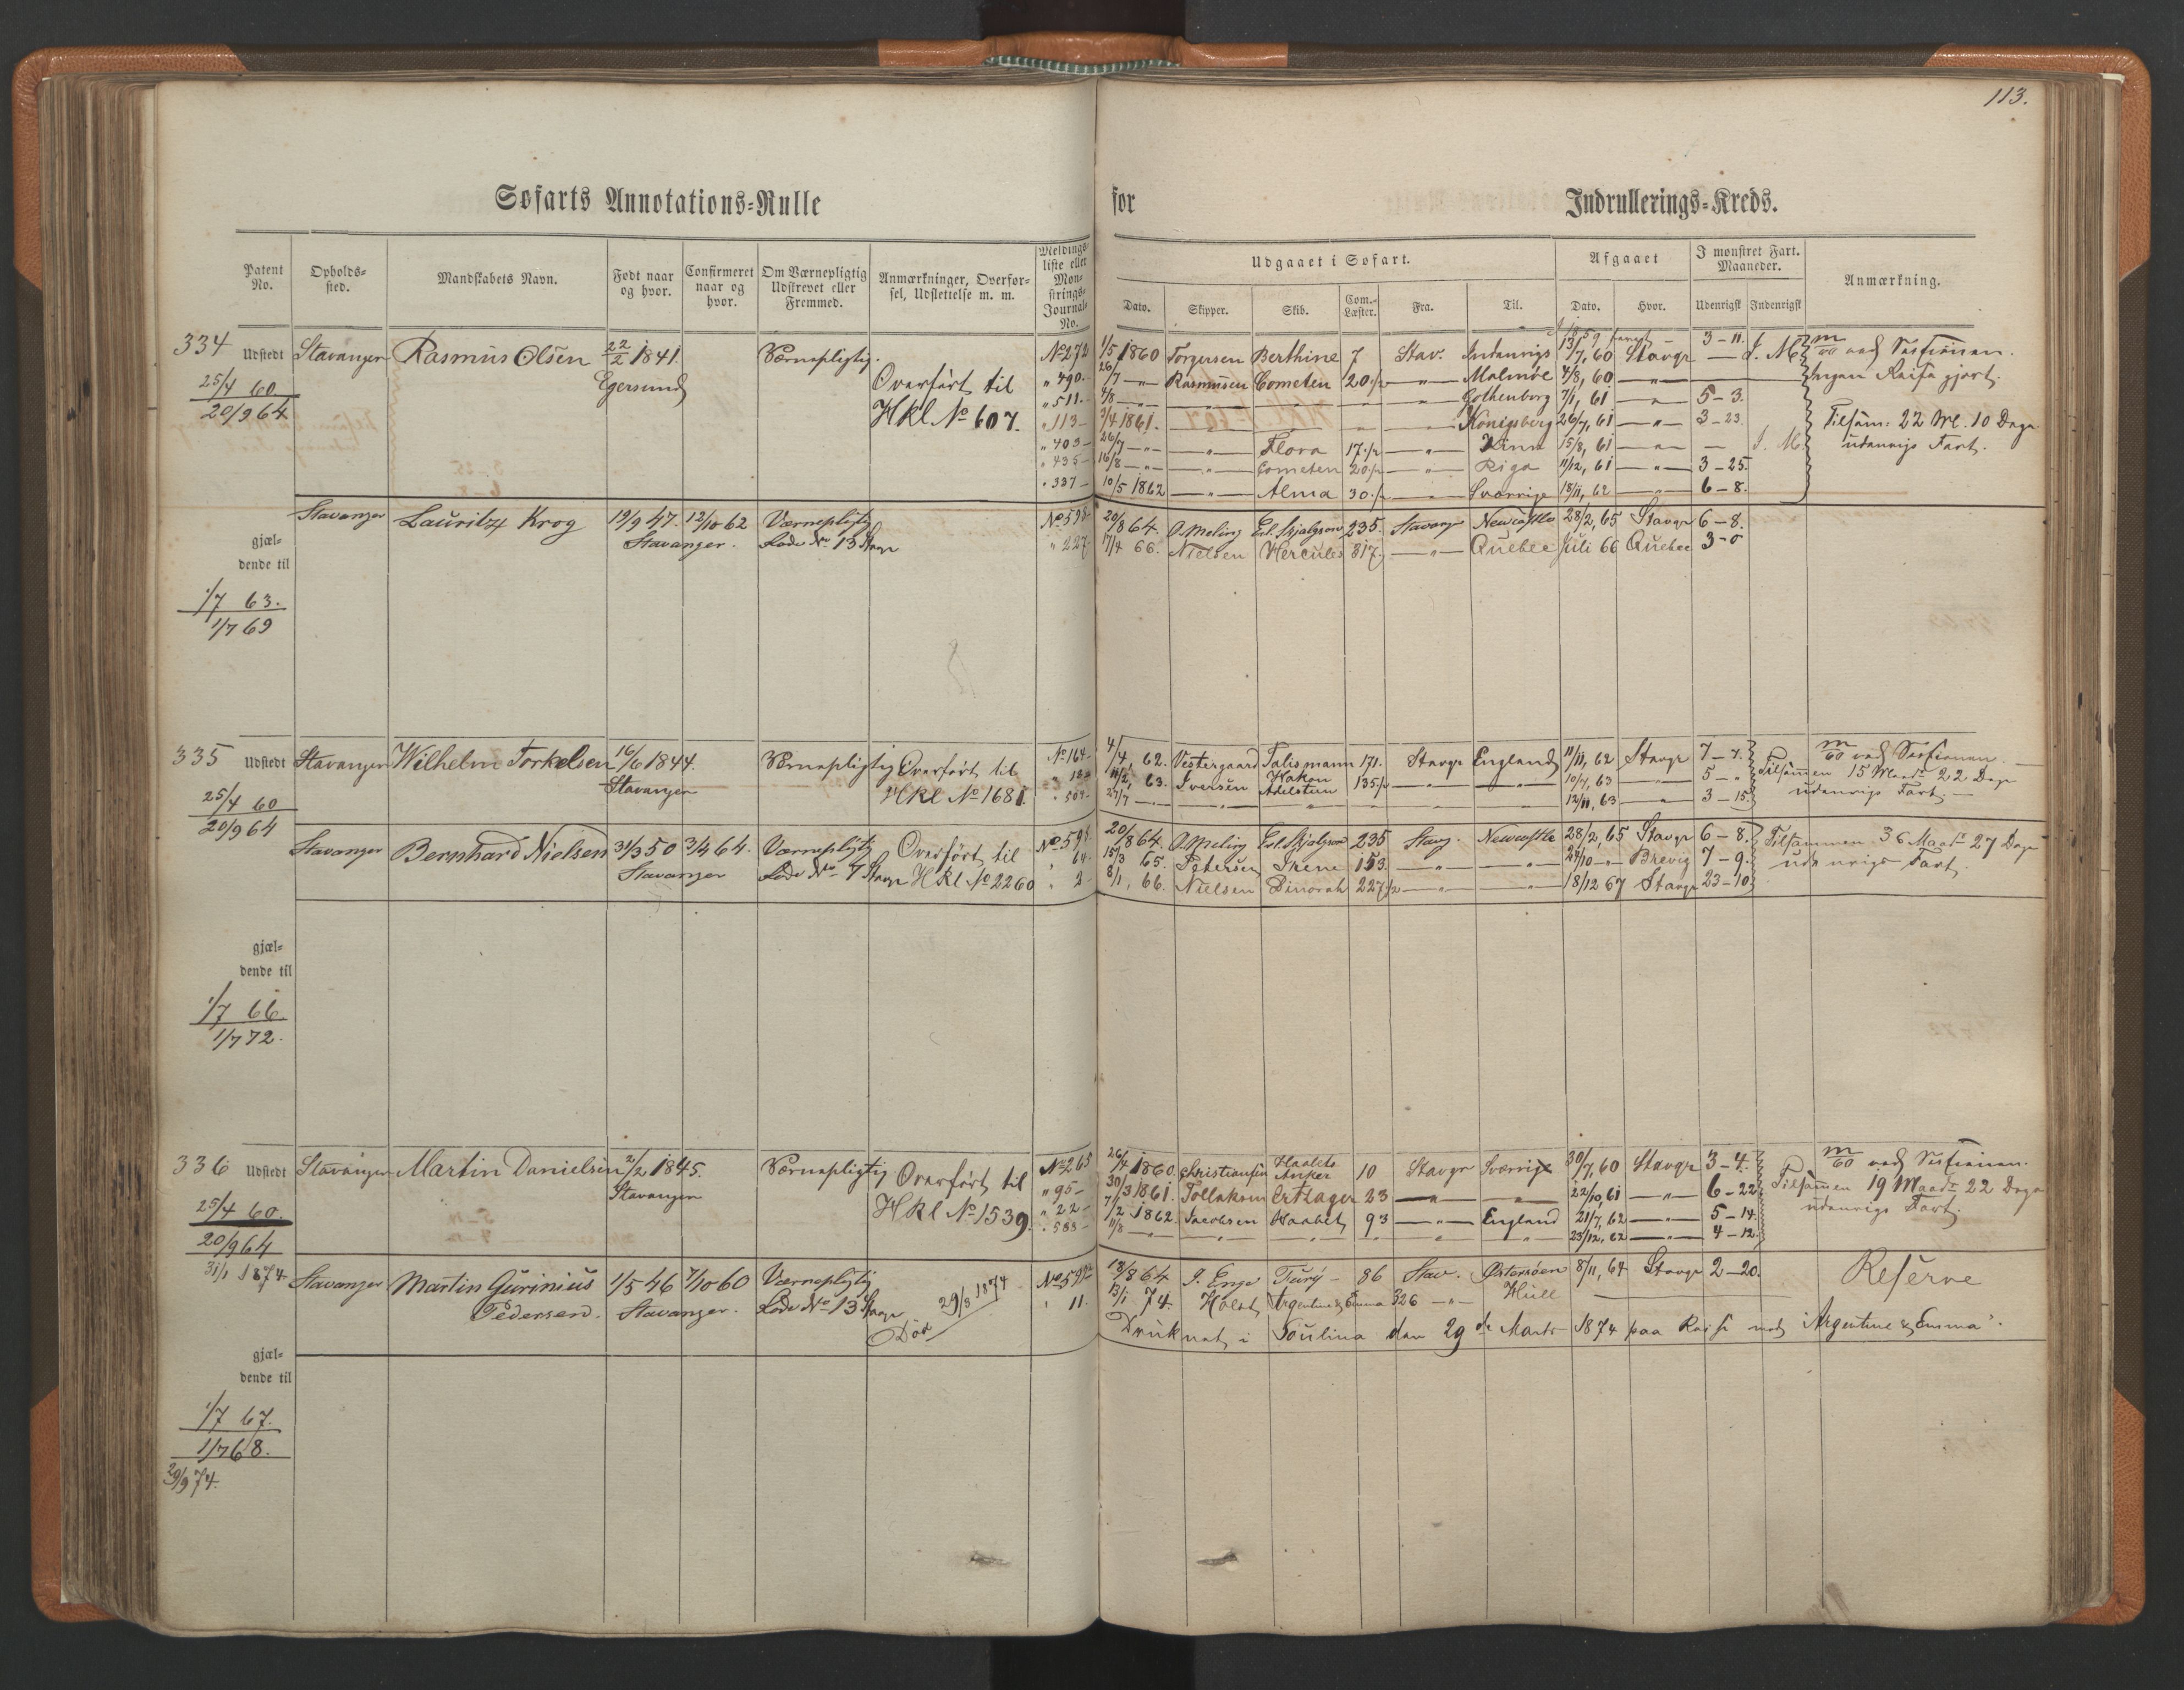 113.
Søfarts Annotations-Rulle for Indrullerings-Kreds.
Patent No. Opholds-sted. Mandskabets Navn. Født naar og hvor. Confirmeret naar og hvor. Om Værnepligtig Udskrevet eller Fremmed. Anmærkninger, Overfør-sel, Udslettelse m. m. Meldings-liste eller Mon-strings-Journal-No.
Udgaaet i Søfart. Afgaaet I monstret Fart. Maaneder. Anmærkning.
Dato. Skipper. Skib. Com.-Læster. Fra. Til. Dato. Hvor. Udenrigsk Indenrigsk
334 Udstedt Stavanger Rasmus Olsen 22/2 1841. Værnepligtig. No 272 1/5 1860 Torgersen Berthine 7 Stav. Indenrigs 7/7, 60 Stavgr — J. M.
25/4 60. Egersund Overført til " 490. 26/7 — Rasmussen Cometen 20 1/2 — " — Malmøe 4/8, 60 — " —
20/9 64 Hkl No 607. " 511. Gothenborg 7/1, 61 — " — 5 - 3.
" 113 3/4 1861. Königsberg 26/7, 61 — " — 3 - 23.
" 403 26/7 — " — Flora 17 1/2 — " — 15/8, 61 — " — J. M.
" 435 16/8 — " — Cometen 20 1/2 — " — Riga 11/12, 61 — " — 3 - 25.
" 337 10/5 1862 — " — Alma 30 1/2 Sverrige 18/11, 62 — " — 6 - 8.
3 - 11. ved Sessionen.
Ingen Reise gjort.
Tilsam: 22 M. 10 Dage
udenrigs Fart.
Stavanger Lauritz Krog 19/9 47. 12/10 62 Værnepligtig No 598 20/8 64. O. Meling Erl. Skjalgson 235. Stavangr Newcastle 28/2, 65 Stavgr 6 - 8.
gjæl-
dende til
Stavanger. Lods No 13 Stavgr " 227 17/4 66. Nielsen Hercules 317. — " — Quebec Juli 66 Quebec 3 - 0
1/7 63.
1/7 69
335 Udstedt Stavanger Wilhelm Torkelsen 16/6 1844. Værnepligtig Overført til No 164 4/4, 62. Vestergaard Talismann 171. Stavgr England 11/11, 62 Stavgr 7 - 7. ved Sessionen.
25/4 60 Stavanger Hkl No 1681. 11/2, 63. Iversen Hakon Adelsteen 135 1/2 — " — 10/7, 63 — " — 5 - " Tilsammen 15 Maad. 22 Dage
20/9 64 " 509 27/7 — " — 12/11, 63 — " — 3 - 15. udenrigs Fart.
Stavanger Bernhard Nielsen 31/3 50 3/4 64. Værnepligtig Overført til No 594 20/8 64. O. Meling Erl. Skjalgson 235 Stavg. Newcastle 28/2, 65 Stavgr 6 - 8. Tilsammen 36 Maad. 27 Dage
Stavanger Lods No 7 Stavgr Hkl No 2260 " 64 15/3 65. Petersen Irene 153. — " — 24/10 — " — Brevig 7 - 9. udenrigs Fart.
" 2 8/1, 66. Nielsen Dinorah 227 1/2 — " — 18/12 67 Stavgr 23 - 10
gjæl-
dende til
1/7 66.
1/7 72.
336 Udstedt Stavanger Martin Danielsen 2/2 1845. Værnepligtig Overført til No 265 26/4 1860. Christiansen Haabets Anker 10 Stavgr Sverrige 30/7, 60 Stavgr 3 - 4. ved Sessionen.
25/4 60. Stavanger Hkl No 1539. " 95 30/3 1861. Tollaksen Ertlager 23 — " — 22/10, 61 — " — 6 - 22 Tilsammen 19 Maad. 22 Dage
20/9 64 " 22 7/2 1862. Jacobsen Haabet 93 — " — England 21/7, 62 — " — 5 - 14. udenrigs Fart.
" 583 11/8 — " — 23/12, 62 — " — 4 - 12.
31/1 1874 Stavanger Martin Gurinius Pedersen. 1/5 46 7/10 60 Værnepligtig No 592 18/8 64 J. Enge Fury - 86 Stav. Østersøen 8/11, 64 Stavgr 2 - 20. Reserve
Stavanger. Lods No 13 Stavgr 29/3 1874 " 11. 13/1 74. Holst Argentine & Emma 326 — " — Hull
Død Druknet i Soulina den 29de Marts 1874 paa Reise med "Argentine & Emma".
gjæl-
dende til
1/7 67.
1/7 68.
29/9 74.